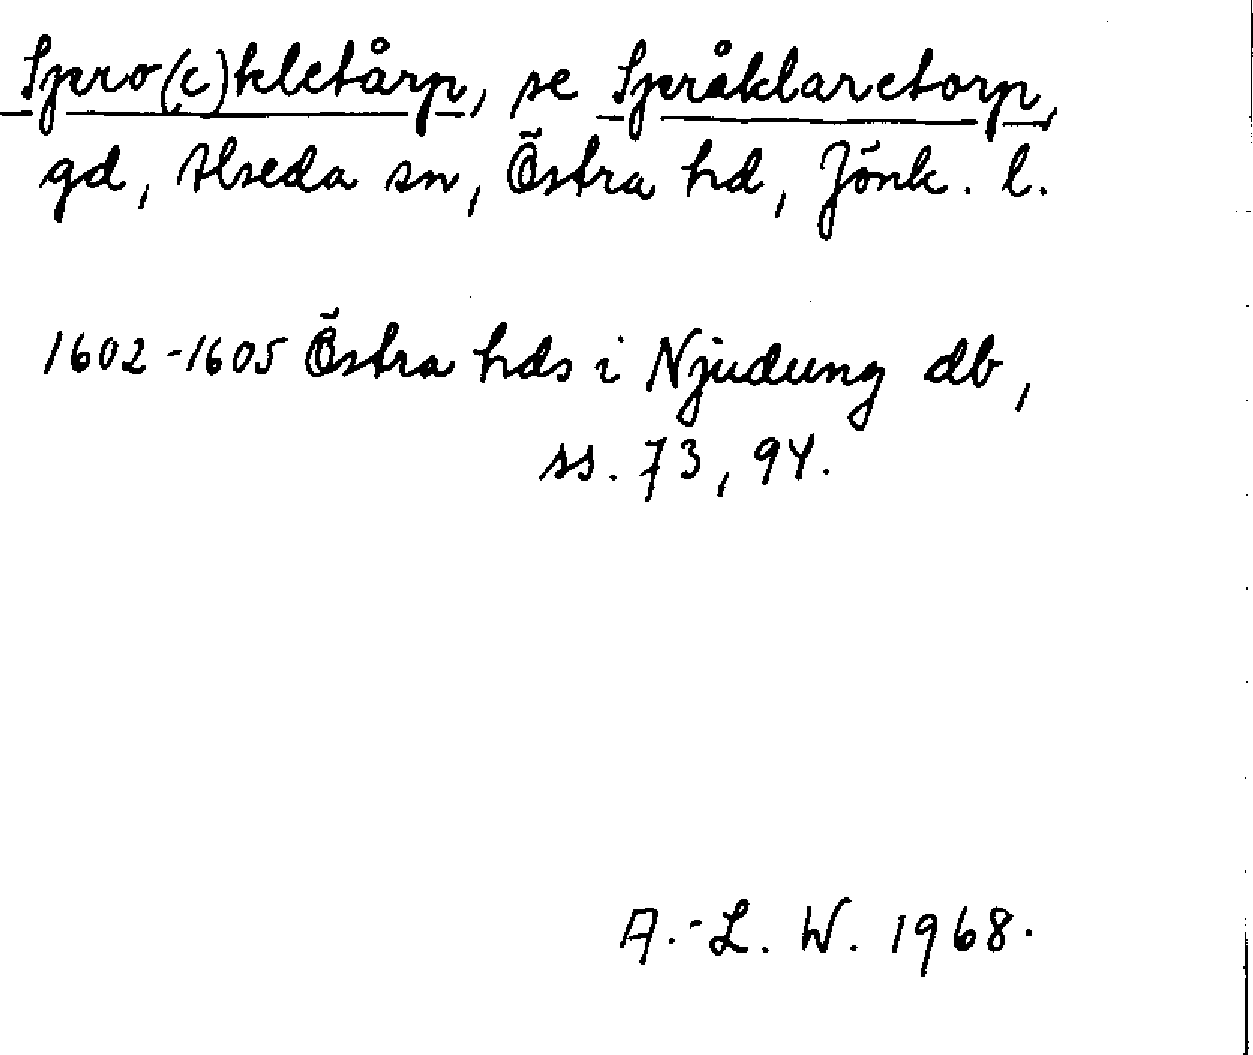 Spro(c)kletårp, se Språklaretorp,
gd, Alseda sn, Östra hd, Jönk. l.
1602-1605 Östra hds i Njudung db,
ss. 73, 94.
A.-L. W. 1968.